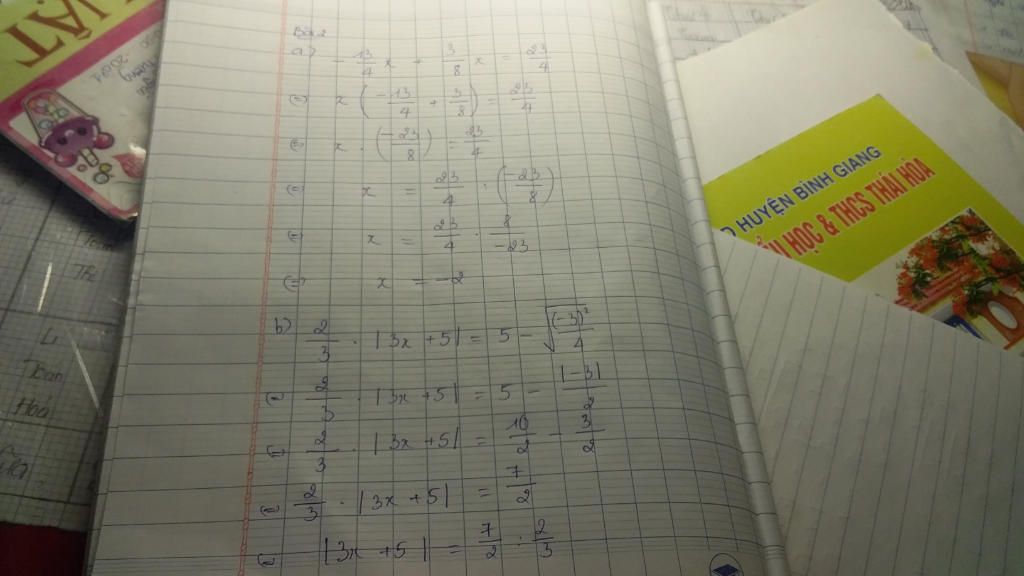 Bài 2
a) -13/4 x + 3/8 x = 23/4
(=) x (-13/4 + 3/8) = 23/4
(=) x . (-23/8) = 23/4
(=) x = 23/4 : (-23/8)
(=) x = 23/4 . 8/-23
(=) x = -2
b) 2/3 . |3x + 5| = 5 - √((-3)²/4)
(=) 2/3 . |3x + 5| = 5 - |-3|/2
(=) 2/3 . |3x + 5| = 10/2 - 3/2
(=) 2/3 . |3x + 5| = 7/2
(=) |3x + 5| = 7/2 : 2/3
UẬT
HUYỆN BÌNH GIANG
HỌC & THCS THÁI HÒA
Th
Li
Toan
Hoá